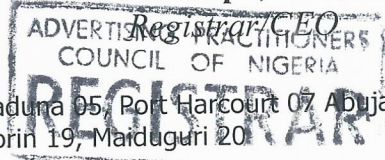 Registrar/CEO
ADVERTISING PRACTITIONERS
COUNCIL OF NIGERIA
REGISTRAR
aduna 05, Port Harcourt 07 Abuja
orin 19, Maiduguri 20